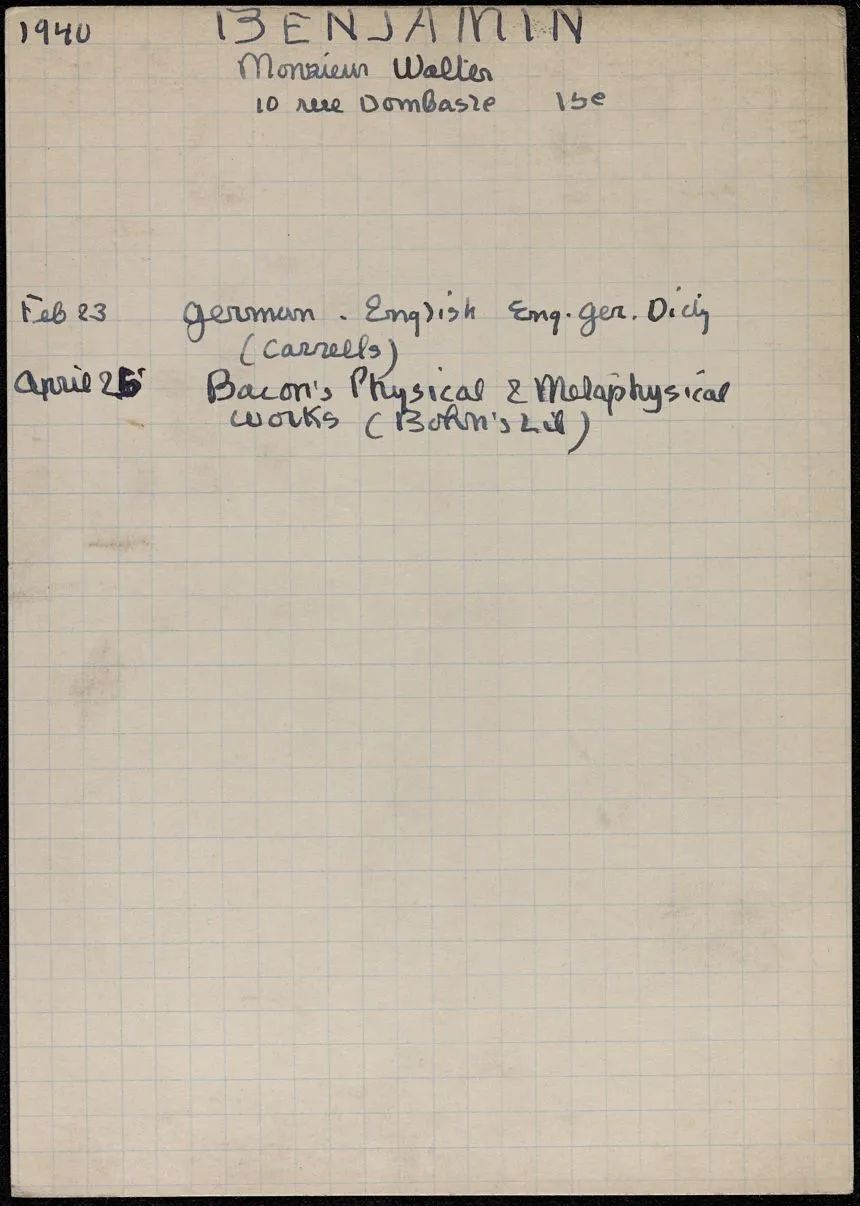 1940 BENJAMIN
Monsieur Walter
10 rue Dombasle 15e
Feb 23 German - English Eng. Ger. Dict
(Cassells)
April 25 Bacon's Physical & Metaphysical
Works (Bohn's Lib)